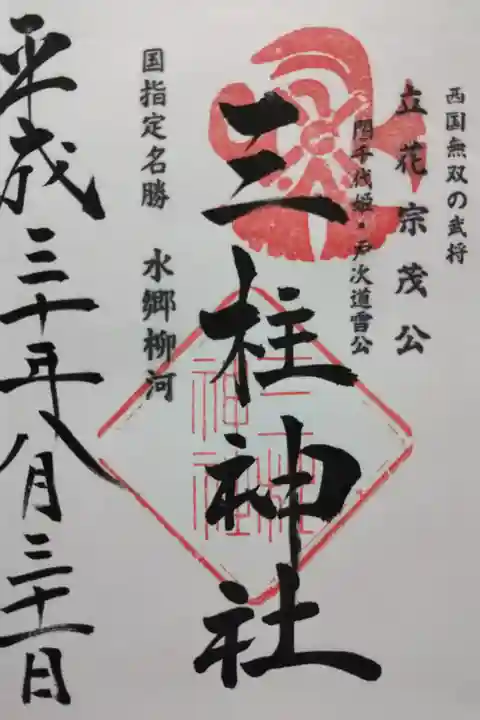 西国無双の武将
立花宗茂公
誾千代姫・戸次道雪公
三柱神社
国指定名勝 水郷柳河
平成三十年八月三十一日